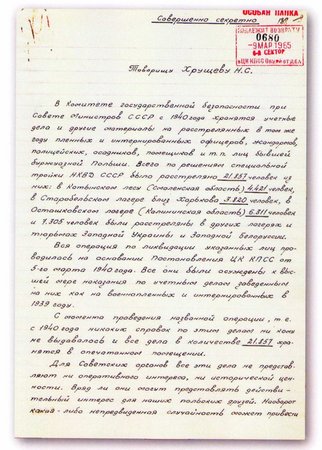 ОСОБАЯ ПАПКА
Совершенно секретно
ПОДЛЕЖИТ ВОЗВРАТУ
0680
-9 МАР 1965
в ЦК КПСС
Товарищу Хрущеву Н.С.
В Комитете государственной безопасности при
Совете Министров СССР с 1940 года хранятся учетные
дела и другие материалы на расстрелянных в том же
году пленных и интернированных офицеров, жандармов,
полицейских, осадников, помещиков и т.п. лиц бывшей
буржуазной Польши. Всего по решениям специальной
тройки НКВД СССР было расстреляно 21.857 человек, из
них: в Катынском лесу (Смоленская область) 4.421 человек,
в Старобельском лагере близ Харькова 3.820 человек, в
Осташковском лагере (Калининская область) 6.311 человек
и 7.305 человек были расстреляны в других лагерях и
тюрьмах Западной Украины и Западной Белоруссии.
Вся операция по ликвидации указанных лиц про-
водилась на основании Постановления ЦК КПСС от
5-го марта 1940 года. Все они были осуждены к выс-
шей мере наказания по учетным делам, заведенным
на них как на военнопленных и интернированных в
1939 году.
С момента проведения названной операции, т.е.
с 1940 года никаких справок по этим делам никому
не выдавалось и все дела в количестве 21.857 хра-
нятся в опечатанном помещении.
Для Советских органов все эти дела не представ-
ляют ни оперативного интереса, ни исторической цен-
ности. Вряд ли они могут представлять действи-
тельный интерес для наших польских друзей. Наоборот
какая-либо непредвиденная случайность может привести